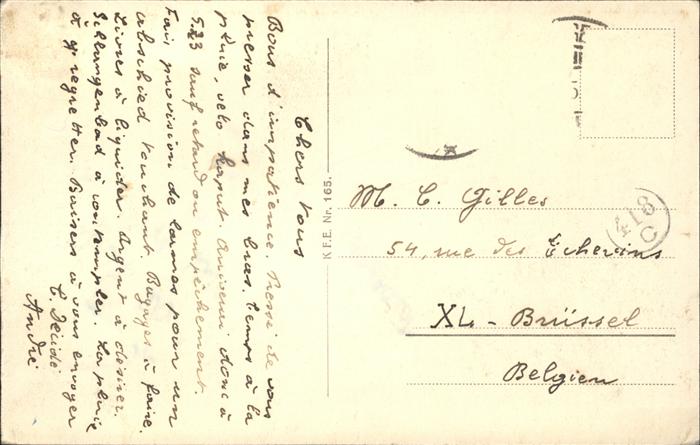 Chers tous
Bous d'impatience. Presse de vous
presser dans mes bras. Temps à la
pluie, velo kaput. Arriverai donc à
5.23 sauf retard ou empêchement.
Fais provision de larmes pour un
abschied touchant. Bagages à faire.
Livres à liquider. Argent à désirer.
Schlangenbad à contempler. La pluie
à y regretter. Baisers à vous envoyer
C. Décidé
André
K.F.E. Nr. 165.
M. C. Gilles
54, rue des Echevins
XL - Brüssel
Belgien
418
C